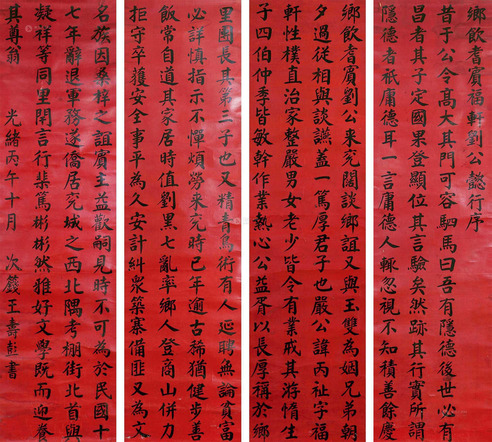 鄉飲耆賓福軒劉公懿行序
昔于公令髙大其門可容駟馬曰吾有隱德後世必有
昌者其子定國果登顯位其言驗矣然跡其行實所謂
隱德者祇庸德耳一言庸德人輒忽視不知積善餘慶
鄉飲耆賓劉公来兖闊談鄉誼又與王雙為姻兄弟朝
夕過從相與談讌蓋一篤厚君子也嚴公諱丙祉字福
軒性樸直治家整嚴男女老少皆令有業戒其游惰生
子四伯仲季皆敏幹作業熱心公益胥以長厚稱於鄉
里團長其第三子也又精青烏術有人延聘無論貧富
必詳慎指示不憚煩勞来兖時已年逾古稀猶健步善
飯常自道其家居時值劉黑七亂率鄉人登商山併力
拒守卒獲安全事平為久安計糾衆築寨備匪又為文
名族因桑梓之誼賓主益歡嗣見時不可為於民國十
七年辭退軍務遂僑居兖城之西北隅考棚街北首與
凝祥等同里閈言行榘篤彬彬然雅好文學既而迎養
其尊翁 光緒丙午十月 次籛王壽彭書